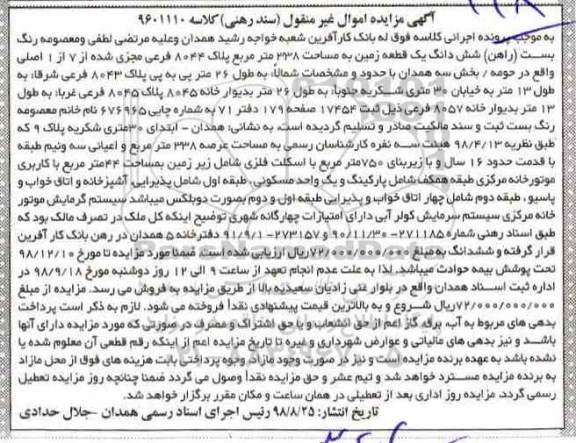 ۱۱۸
آگهی مزایده اموال غیر منقول (سند رهنی) کلاسه ۹۶۰۱۱۱۰
به موجب پرونده اجرائی کلاسه فوق له بانک کارآفرین شعبه خواجه رشید همدان وعلیه مرتضی لطفی ومعصومه رنگ
بست (راهن) شش دانگ یک قطعه زمین به مساحت ۳۳۸ متر مربع پلاک ۸۰۴۴ فرعی مجزی شده از ۷ از ۱ اصلی
واقع در حومه / بخش سه همدان با حدود و مشخصات شمالا: به طول ۲۶ متر پی به پی پلاک ۸۰۴۳ فرعی شرقا: به
طول ۱۳ متر به خیابان ۳۰ متری شکریه جنوبا: به طول ۲۶ متر بدیوار خانه ۸۰۴۵ پلاک ۸۰۴۵ فرعی غربا: به طول
۱۳ متر بدیوار خانه ۸۰۵۷ فرعی ذیل ثبت ۱۷۴۵۴ صفحه ۱۷۹ دفتر ۷۱ به شماره چاپی ۶۷۶۹۶۵ نام خانم معصومه
رنگ بست ثبت و سند مالکیت صادر و تسلیم گردیده است. به نشانی: همدان - ابتدای ۳۰متری شکریه پلاک ۹ که
طبق نظریه ۹۸/۴/۱۳ هیئت سه نفره کارشناسان رسمی به مساحت عرصه ۳۳۸ متر مربع و اعیانی سه ونیم طبقه
با قدمت حدود ۱۶ سال و با زیربنای ۷۵۰متر مربع با اسکلت فلزی شامل زیر زمین بمساحت ۴۴متر مربع با کاربری
موتورخانه مرکزی طبقه همکف شامل پارکینگ و یک واحد مسکونی، طبقه اول شامل پذیرایی آشپزخانه و اتاق خواب و
پاسیو، طبقه دوم شامل چهار اتاق خواب و پذیرایی طبقه اول و دوم بصورت دوبلکس میباشد سیستم گرمایش موتور
خانه مرکزی سیستم سرمایش کولر آبی دارای امتیازات چهارگانه شهری توضیح اینکه کل ملک در تصرف مالک بود که
طبق اسناد رهنی شماره ۲۷۱۱۸۵- ۹۰/۱۱/۳۰ -۲۷۳۱۵۷ ۹۱/۹/۱- دفترخانه ۵ همدان در رهن بانک کار آفرین
قرار گرفته و ششدانگ به مبلغ ۷۲/۰۰۰/۰۰۰/۰۰۰ریال ارزیابی شده است ضمنا مورد مزایده تا مورخ ۹۸/۱۲/۱۰
تحت پوشش بیمه حوادث میباشد. لذا به علت عدم انجام تعهد از ساعت ۹ الی ۱۲ روز دوشنبه مورخ ۹۸/۹/۱۸ در
اداره ثبت اسناد همدان واقع در بلوار غنی زادیان سعیدیه بالا از طریق مزایده به فروش می رسد. مزایده از مبلغ
۷۲/۰۰۰/۰۰۰/۰۰۰ریال شروع و به بالاترین قیمت پیشنهادی نقدا فروخته می شود. لازم به ذکر است پرداخت
بدهی های مربوط به آب، برق، گاز اعم از حق انشعاب و یا حق اشتراک و مصرف در صورتی که مورد مزایده دارای آنها
باشد و نیز بدهی های مالیاتی و عوارض شهرداری و غیره تا تاریخ مزایده اعم از اینکه رقم قطعی آن معلوم شده یا
نشده باشد به عهده برنده مزایده است و نیز در صورت وجود مازاد وجوه پرداختی بابت هزینه های فوق از محل مازاد
به برنده مزایده مسترد خواهد شد و نیم عشر و حق مزایده نقدا وصول می گردد ضمنا چنانچه روز مزایده تعطیل
رسمی گردد، مزایده روز اداری بعد از تعطیلی در همان ساعت و مکان مقرر برگزار خواهد شد.
تاریخ انتشار: ۹۸/۸/۲۵ رئیس اجرای اسناد رسمی همدان -جلال حدادی